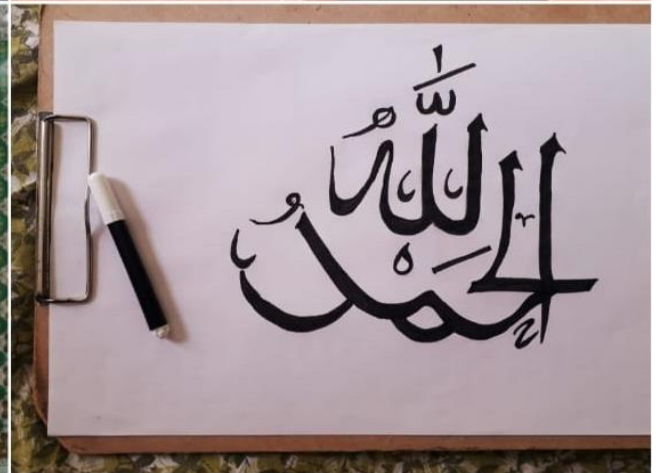 الحمدُ
للّه